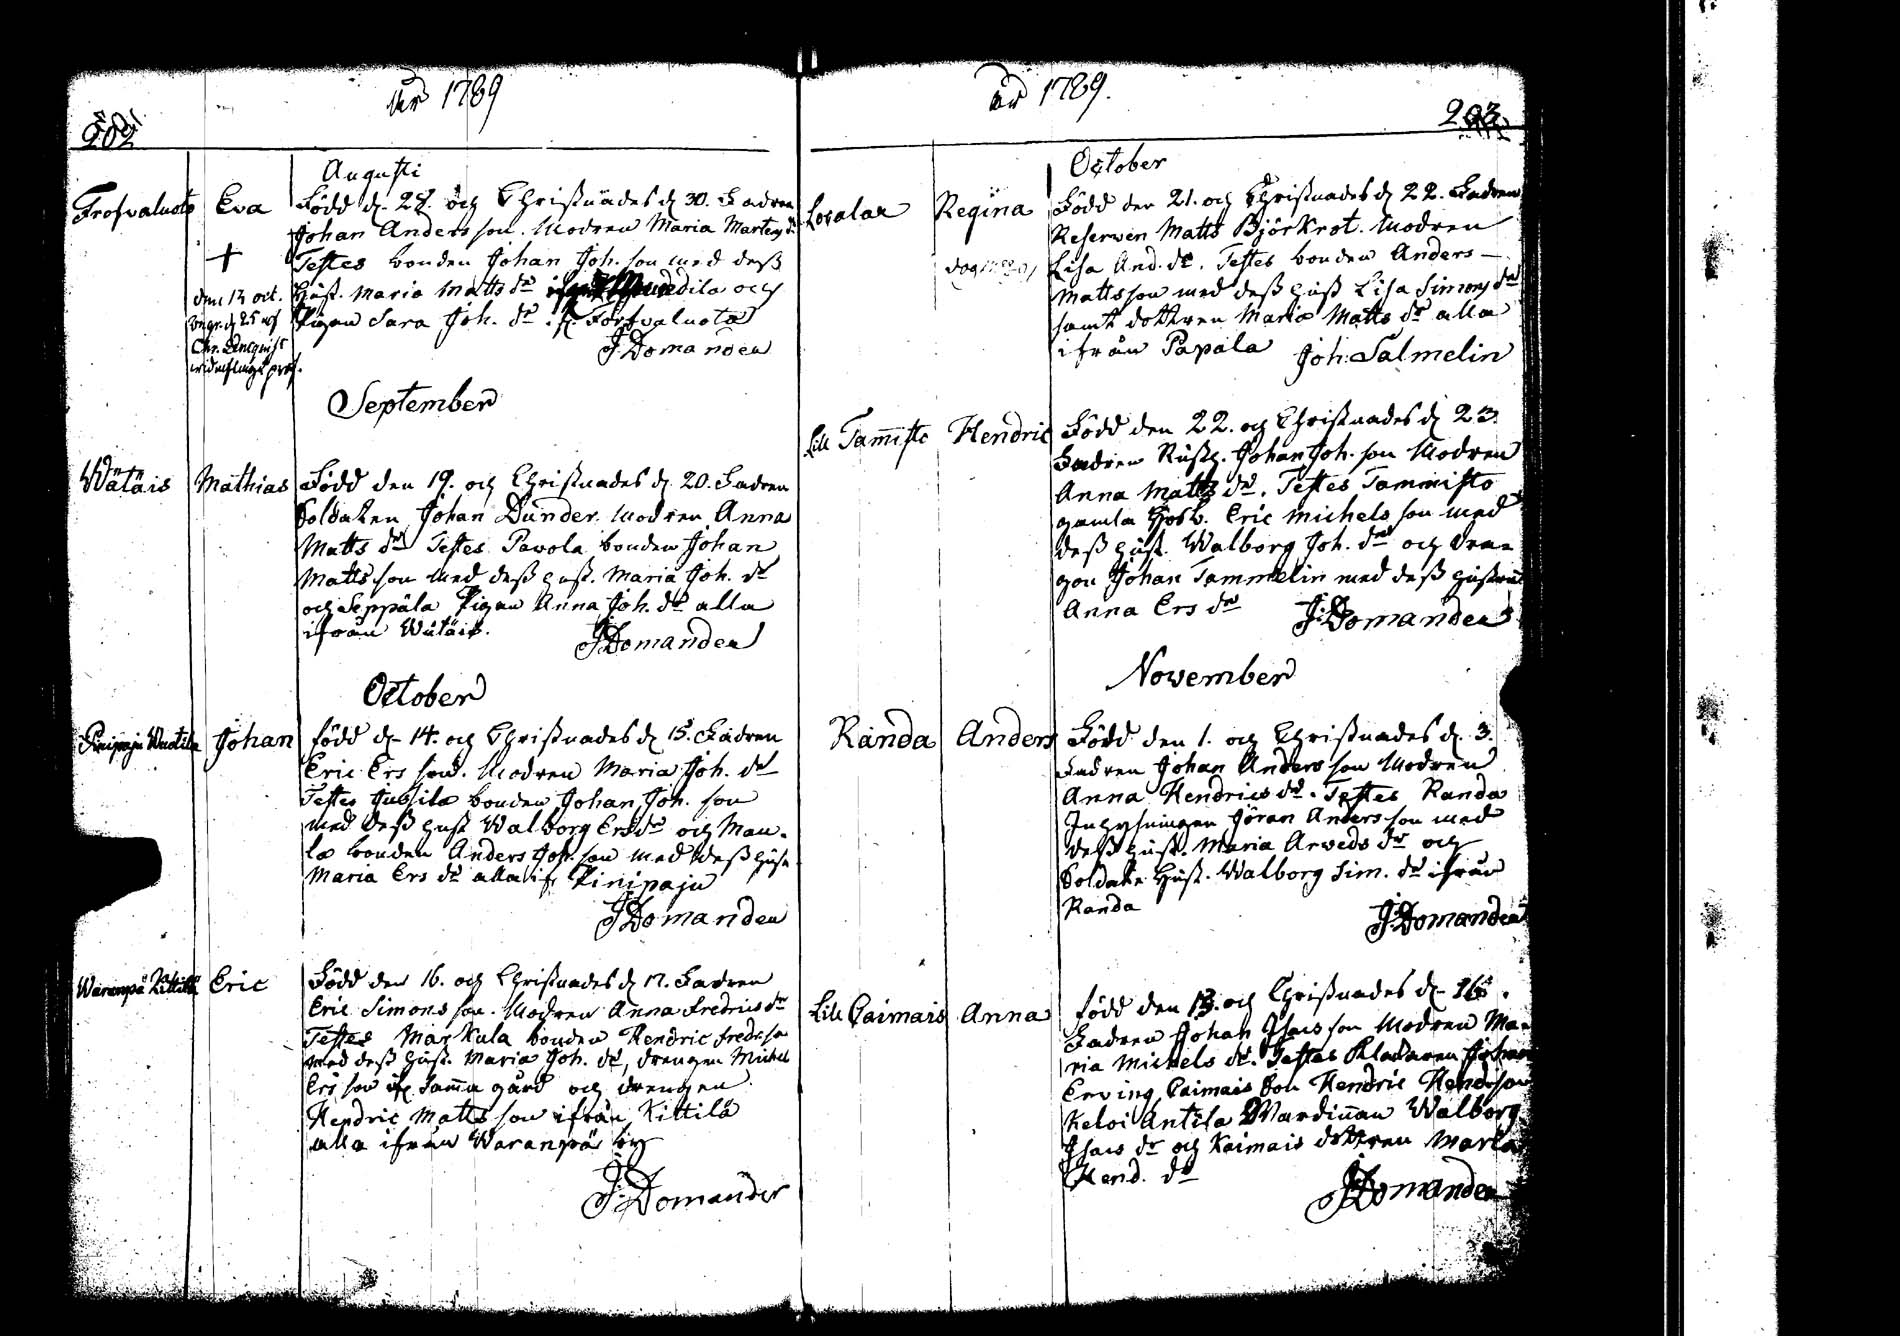 År 1789
202
Augusti
Eva
Född d. 28. och Christnades d. 30. Fadren
Johan Anders son. Modren Maria Martens dr
Testes bonden Johan Joh. son med dess
Hust. Maria Matts dr och
Pigan Sara Joh. dr
J. Domander
+
den 13 oct.
September
Wätäis
Mathias
Född den 19. och Christnades d. 20. Fadren
Soldaten Johan Dunder. Modren Anna
Matts dr Testes Pavola bonden Johan
Matts son med dess hust. Maria Joh. dr
och Seppäla Pigan Anna Joh. dr alla
ifrån Wätäis.
J. Domander
October
Johan
född d. 14. och Christnades d. 15. Fadren
Eric Ers son. Modren Maria Joh. dr
Testes Jussila bonden Johan Joh. son
med dess hust Walborg Ers dr och Man-
la bonden Anders Joh. son med dess hust
Maria Ers dr alla if. Pinipaju
J. Domander
Waranpä Kittilä
Eric
Född den 16. och Christnades d. 17. Fadren
Eric Simons son. Modren Anna Fredrics dr
Testes Markula bonden Hendric Fredr. son
med dess hust. Maria Joh. dr, drengen Michel
Ers son if. samma gård och drengen
Hendric Matts son ifrån Kittilä
alla ifrån Waranpä by
J. Domander
År 1789.
203
October
Regina
Född den 21. och Christnades d. 22. Fadren
Reserven Matts Björkrot. Modren
Lisa And. dr. Testes bonden Anders
Matts son med dess hust Lisa Simons dr
samt dottren Maria Matts dr alla
ifrån Papala
Joh: Salmelin
Lill Tammisto
Hendric
Född den 22. och Christnades d. 23.
Fadren Rusth. Johan Joh. son Modren
Anna Matts dr. Testes Tammisto
gamla Hosb. Eric Michels son med
dess hust. Walborg Joh. dr och dra-
gon Johan Tammelin med dess hustru
Anna Ers dr
J. Domander
November
Randa
Anders
Född den 1. och Christnades d. 3.
Fadren Johan Anders son Modren
Anna Hendrics dr. Testes Randa
Inhysningen Jöran Anders son med
dess hust. Maria Arweds dr och
Soldate Hust. Walborg Sim. dr ifrån
Randa
J. Domander
Lill Caimais
Anna
född den 13. och Christnades d. 16.
Fadren Johan Isacs son Modren Ma-
ria Michels dr. Testes Johan
Erving, Caimais Hendric Hendr. son
Keloi Antila Walborg
Isacs dr och Kaimais dottren Maria
Hend. dr
J. Domander